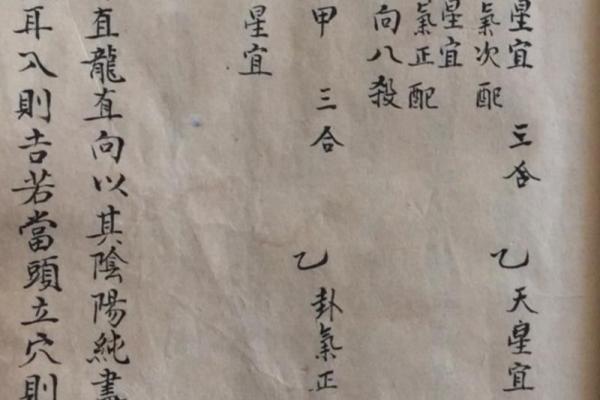 星宜 三合 乙天皇宜
氣次配
星宜
氣正配
向八殺
甲 三合 乙卦氣正
星宜
直龍直向以其陰陽純盡
耳入則吉若當頭立穴則